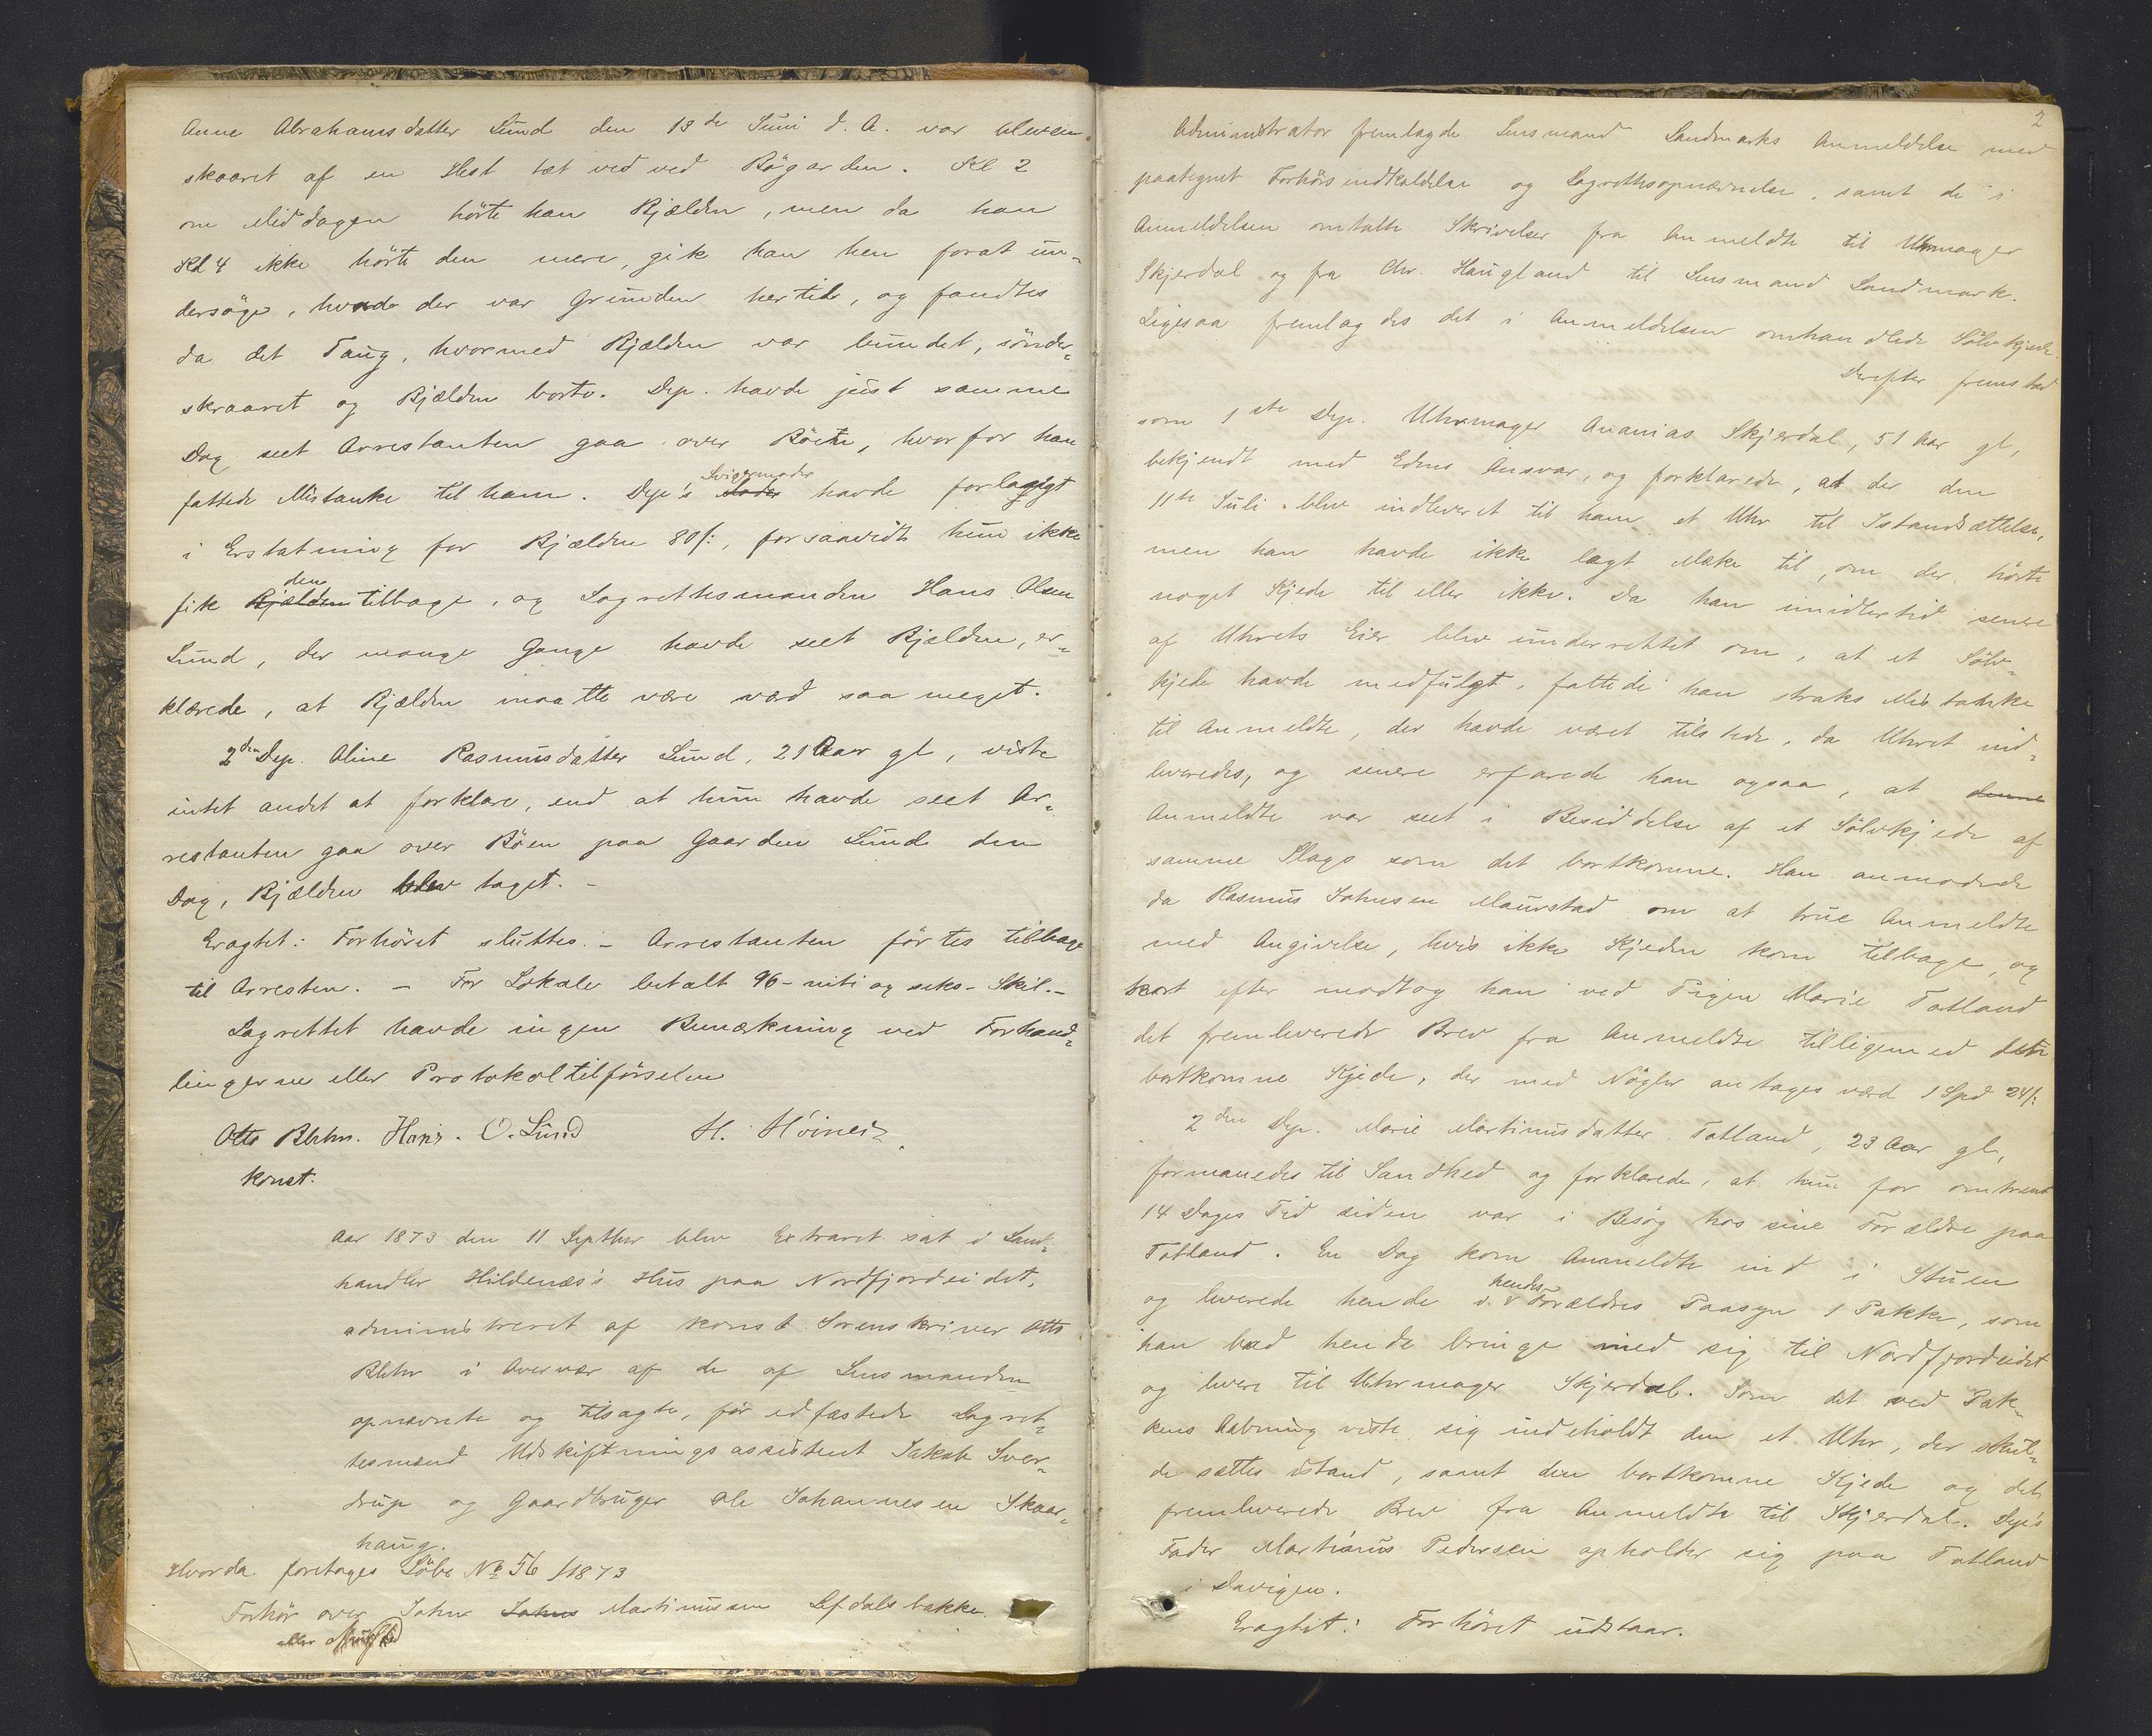 Anne Abrahamsdatter Lund den 13de Juni d. A. var bleven
skaaret af en Hest tæt ved ved Bögarden. Kl 2
om Middagen hörte han Bjælden, men da han
Kl 4 ikke hörte den mere, gik han hen forat un-
dersöge, hvad der var Grunden hertil, og fandtes
da det Taug, hvormed Bjælden var bundet, sönder-
skraaret og Bjælden borte. Dep. havde just samme
Dag seet Arrestanten gaa over Böen, hvorfor han
fattede Mistanke til ham. Dep's Svigermoder havde forlangt
i Erstatning for Bjælden 80 f:, forsaavidt hun ikke
fik den tilbage, og Lagrettesmanden Hans Olsen
Lund, der mange Gange havde seet Bjælden, er-
klærede, at Bjælden maatte være værd saa meget.
2den Dep. Oline Rasmusdatter Lund, 21 Aar gl, vidste
intet andet at forklare, end at hun havde seet Ar-
restanten gaa over Böen paa Gaarden Lund den
Dag, Bjælden blev taget. -
Eragtet: Forhöret sluttes. - Arrestanten förtes tilbage
til Arresten. - For Lokale betalt 96 - niti og seks - Skil. -
Lagrettet havde ingen Bemærkning ved Forhand-
lingerne eller Protokoltilförselen
Otto Blehr. Hans. O. Lund H. Höines
konst.
Aar 1873 den 11 Septbr blev Extraret sat i Land-
handler Hildenæs's Hus paa Nordfjordeidet,
administreret af konst Sorenskriver Otto
Blehr i Overvær af de af Lensmanden
opnævnte og tilsagte, för edfæstede Lagret-
tesmænd Udskiftningsassistent Jakob Sver-
drup og Gaardbruger Ole Johannesen Skaar-
haug.
Hvorda foretoges Löbe No 56 / 1873
Forhör over John Johns Martinussen Lefdalsbakke
eller
2
Administrator fremlagde Lensmand Landmarks Anmeldelse med
paategnet Forhörsindkaldelse og Lagrettsopnævnelse, samt de i
Anmeldelsen omtalte Skrivelser fra Anmeldte til Uhrmager
Skjerdal og fra Chr. Haugland til Lensmand Landmark.
Ligesaa fremlagdes det i Anmeldelsen omhandlede Sölvkjede.
Derefter fremstod
som 1ste Dep. Uhrmager Ananias Skjerdal, 51 Aar gl,
bekjendt med Edens Ansvar, og forklarede, at der den
11te Juli blev indleveret til ham et Uhr til Istandsættelse,
men han havde ikke lagt Mærke til, om der hörte
noget Kjede til eller ikke. Da han imidlertid senere
af Uhrets Eier blev underrettet om, at et Sölv-
kjede havde medfulgt, fattede han straks Mistanke
til Anmeldte, der havde været tilstede, da Uhret ind-
leveredes, og senere erfarede han ogsaa, at denne
Anmeldte var seet i Besiddelse af et Sölvkjede af
samme Slags som det bortkomne. Han anmodede
da Rasmus Johnsen Maurstad om at true Anmeldte
med Angivelse, hvis ikke Kjeden kom tilbage, og
kort efter modtog han ved Pigen Marie Totland
det fremleverede Brev fra Anmeldte tilligemed det
bortkomne Kjede, der med Nögler antages værd 1 Spd 24 f:
2den Dep. Marie Martinusdatter Totland, 23 Aar gl,
formanedes til Sandhed og forklarede, at hun for omtrent
14 Dages Tid siden var i Besög hos sine Forældre paa
Totland. En Dag kom Anmeldte ind i Stuen
og leverede hende i hendes Forældres Paasyn 1 Pakke, som
han bad hende bringe med sig til Nordfjordeidet
og levere til Uhrmager Skjerdal. Som det ved Pak-
kens Aabning viste sig indeholdt den et Uhr, der skul-
de sættes istand, samt den bortkomne Kjede og det
fremleverede Brev fra Anmeldte til Skjerdal. Dep's
Fader Martinus Pedersen opholder sig paa Totland
i Davigen.
Eragtet: Forhöret udstaar.